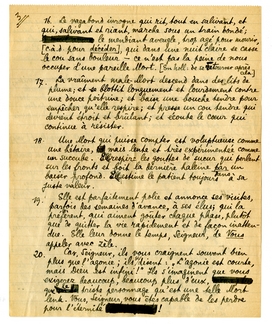 3
16. Le vagabond ivrogne qui rit, tout en salivant, et
qui, salivant et riant, marcha sous un train bondé;
le mendiant aveugle, trop âgé pour mourir,
[c.à.d. pour décider], qui dans une nuit claire se casse
le cou sans douleur — ce n'est pas la peine de nous
occuper d'une pareille Mort.
17. La vraiment male Mort descend dans des lits de
plume; et se blottit longuement et lourdement contre
une douce poitrine; et passe une bouche tendre pour
empêcher qu'elle respire; et presse un cou tendre qui
devient étroit et brulant; et écoute le cœur qui
continue à résister.
18. Une Mort qui puisse compter est voluptueuse comme
une mais lente et très expérimentée comme
un succube. les gouttes de sueur qui perlent
sur les fronts et boit la dernière haleine par un
baiser profond. le patient toujours dans sa
juste valeur.
19. Elle est parfaitement polie et annonce ses visites,
parfois les semaines d'avance, à ses élus; qui la
préfèrent, qui aiment goûter chaque phase, plutôt
que de quitter la vie rapidement et de façon inatten-
due. Elle leur donne le temps, Seigneur, de Vous
appeler avec zèle.
20. Car, Seigneur, ils vous craignent souvent bien
plus que l'agonie à présent, l'agonie est courte
mais Dieu est infini! Ils s'imaginent que vous
beaucoup, beaucoup plus
triste personnage qu'est une telle Mort
lente. Vous, Seigneur, vous êtes capable de les perdre
pour l'éternité